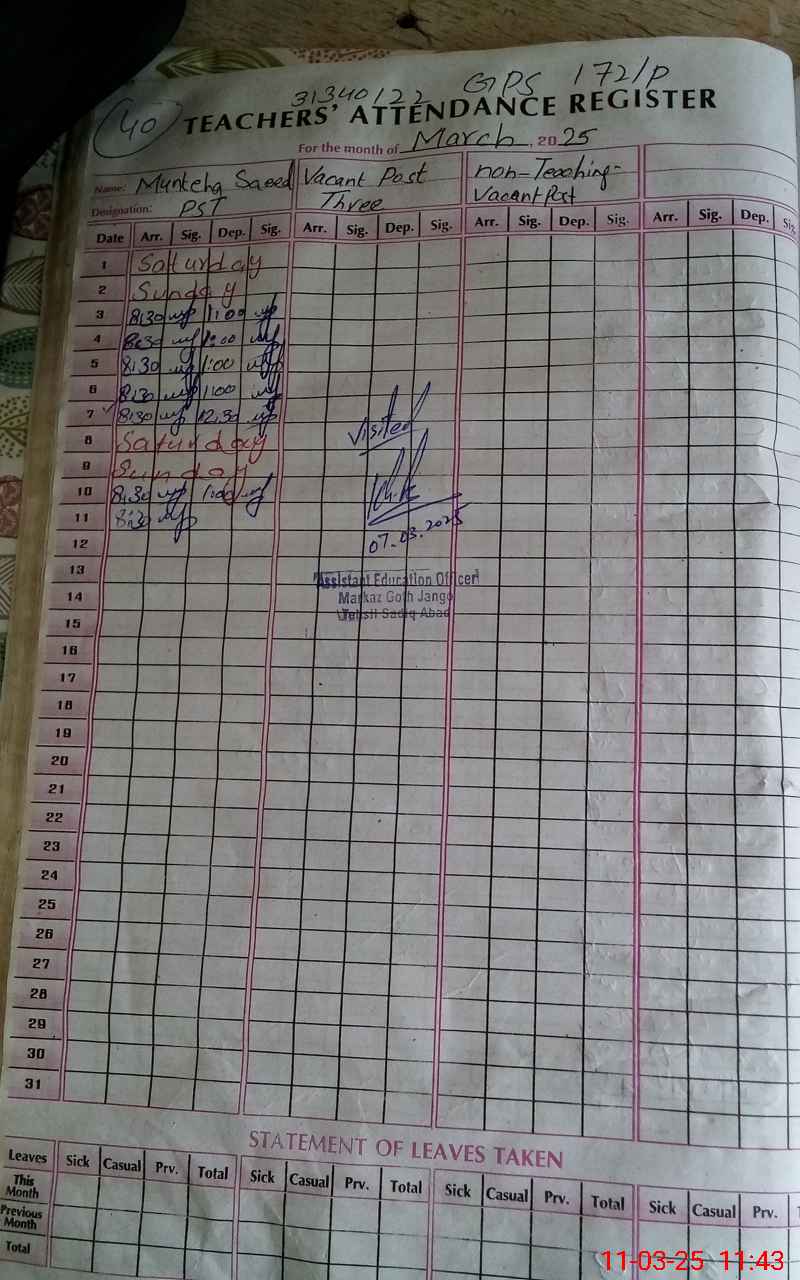 31340122 GPS 172/P
40
TEACHERS' ATTENDANCE REGISTER
For the month of March, 2025
Name: Munteha Saeed Vacant Post non-Teaching-
Designation: PST Three Vacant Post
Date Arr. Sig. Dep. Sig. Arr. Sig. Dep. Sig. Arr. Sig. Dep. Sig. Arr. Sig. Dep. Sig.
1 Saturday
2 Sunday
3 8:30 1:00
4 8:30 1:00
5 8:30 1:00
6 8:30 1:00
7 8:30 12:30
8 Saturday Visited
9 Sunday
10 8:30 1:00
11 8:30
12 07-03-2025
13 Assistant Education Officer
14 Markaz Goth Jango
15 Tehsil Sadiq Abad
16
17
18
19
20
21
22
23
24
25
26
27
28
29
30
31
STATEMENT OF LEAVES TAKEN
Leaves Sick Casual Prv. Total Sick Casual Prv. Total Sick Casual Prv. Total Sick Casual Prv.
This Month
Previous Month
Total
11-03-25 11:43